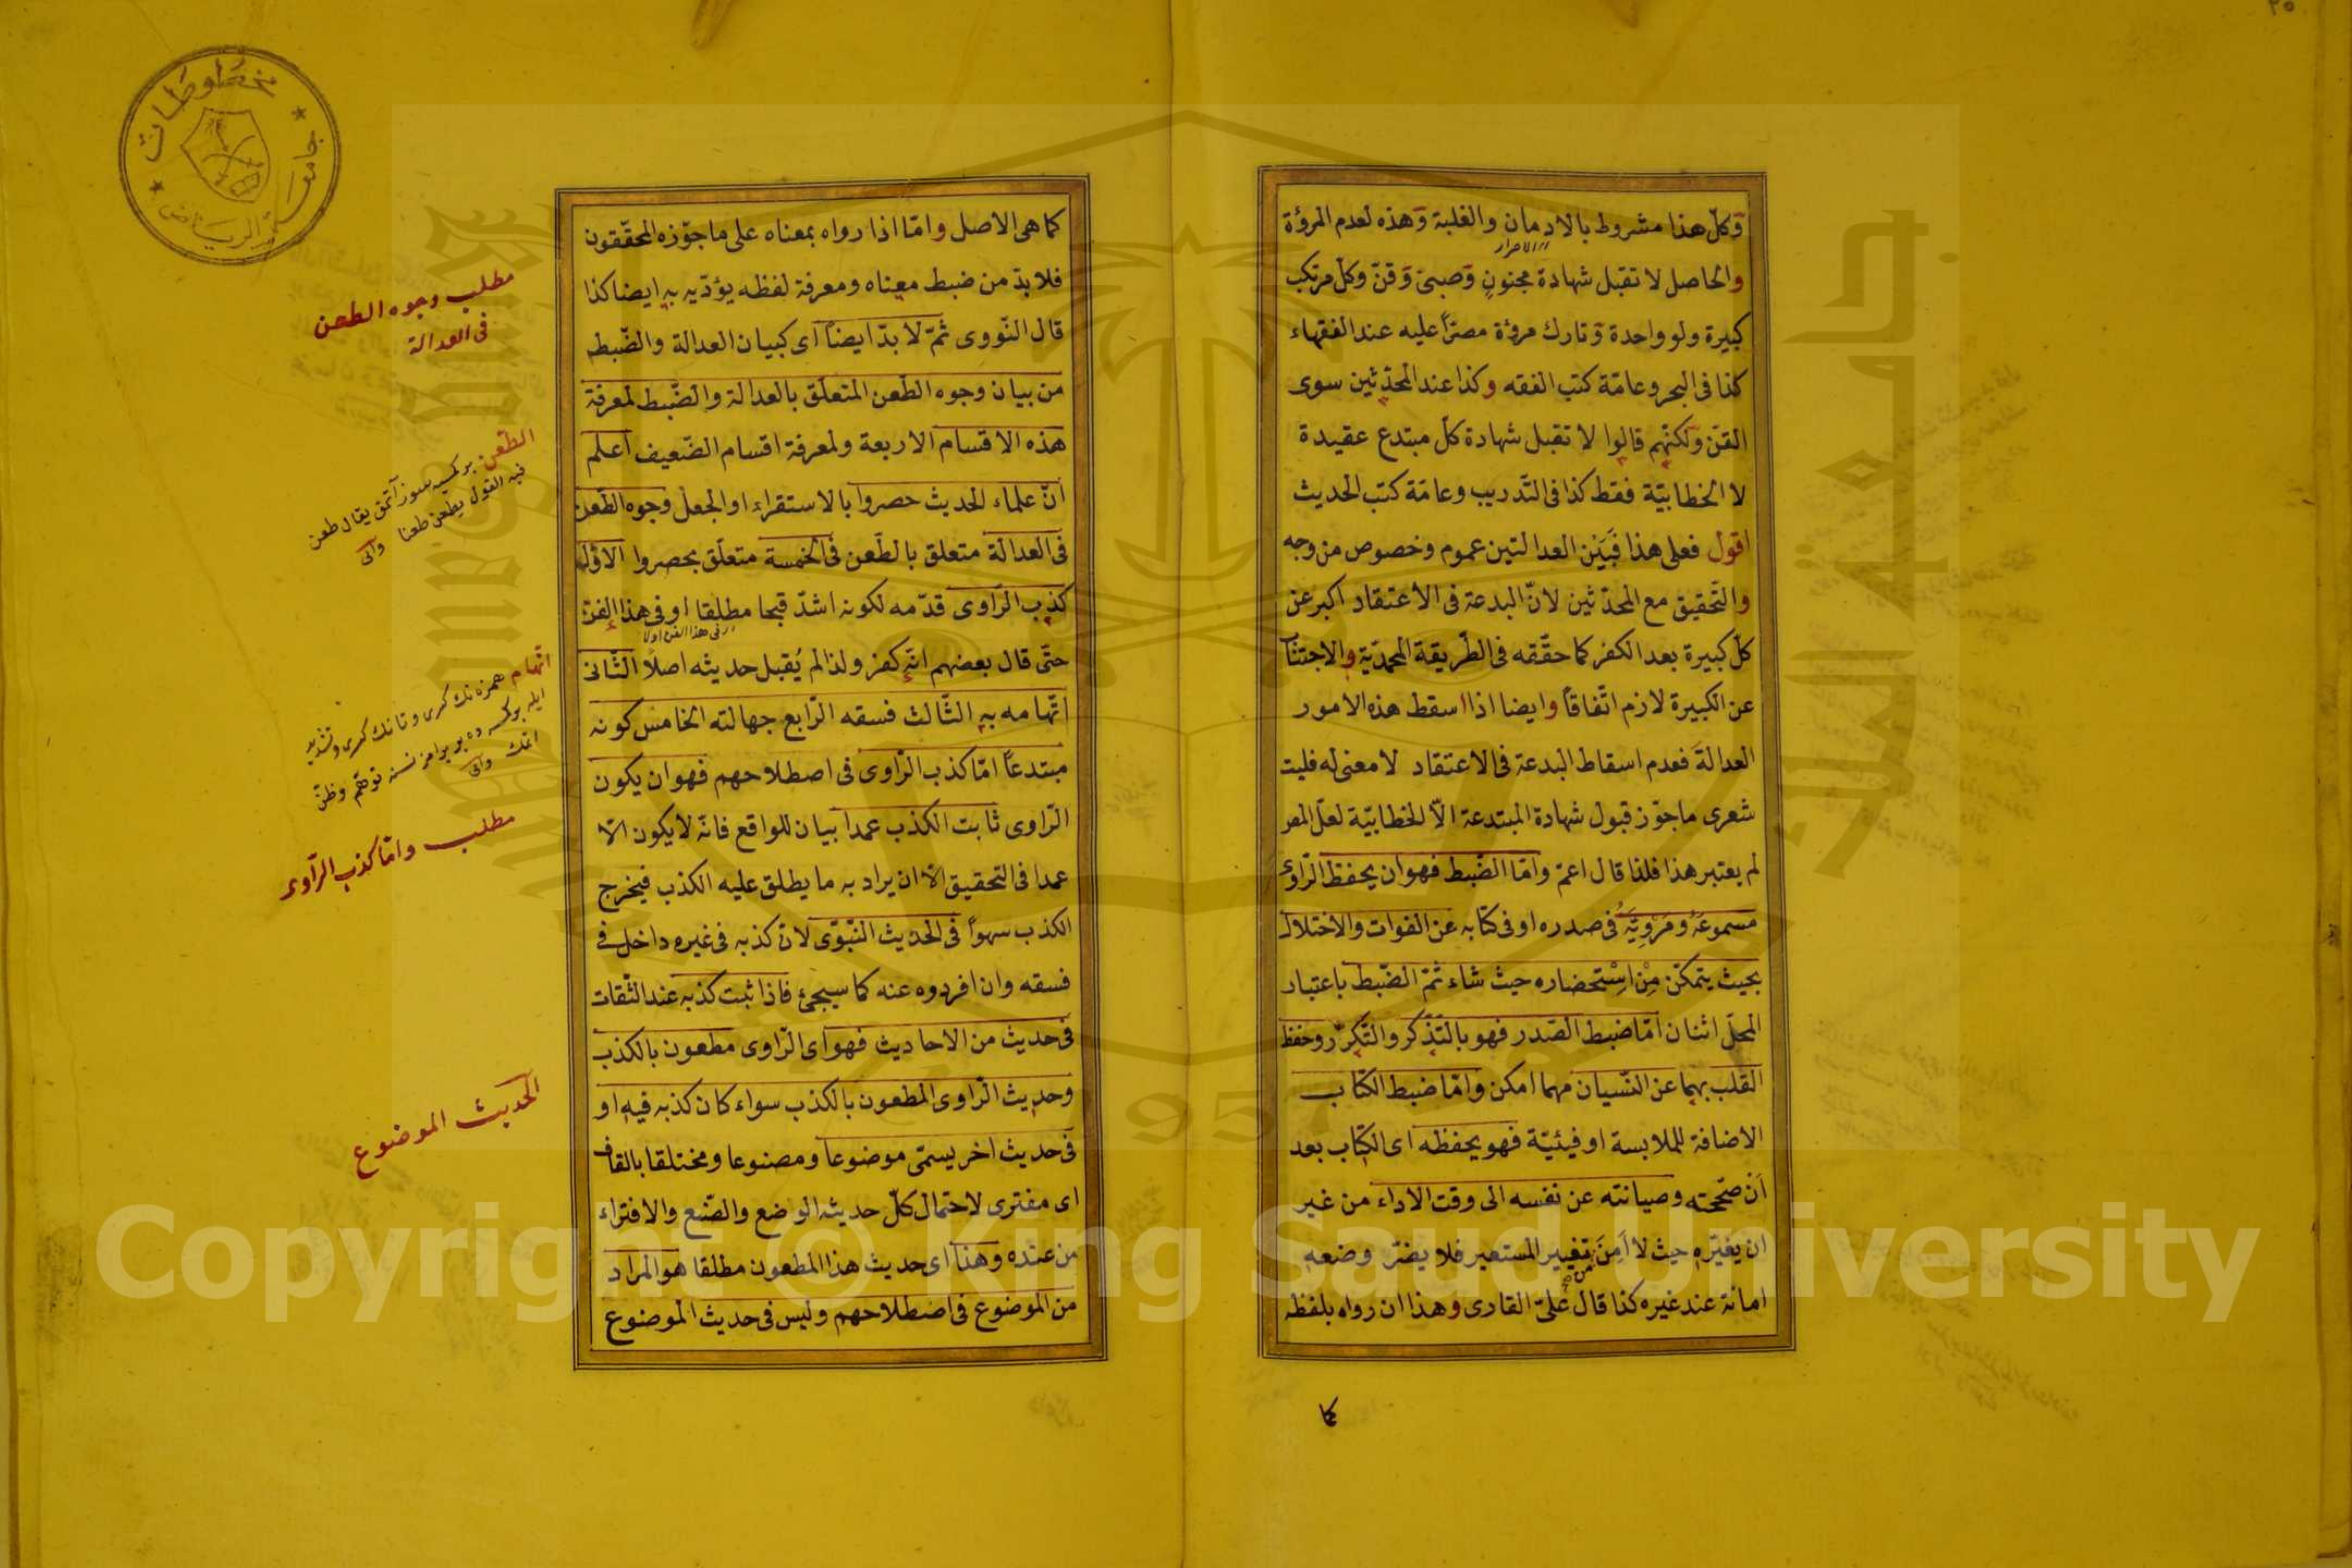 ٢٥
وكلّ هذا مشروط بالادمان والغلبة وهذه لعدم المروٴة
الاصرار
والحاصل لا تقبل شهادة مجنونٍ وصبىّ وقنّ وكلّ مرتكب
كبيرة ولو واحدة وتارك مروٴة مصرّاً عليه عند الفقهاء
كذا فى البحر وعامّة كتب الفقه وكذا عند المحدّثين سوى
القنّ ولكنّهم قالوا لا تقبل شهادة كلّ مبتدع عقيدة
لا الخطابيّة فقط كذا فى التّدريب وعامّة كتب الحديث
اقول فعلى هذا فَبَيْنَ العدالتين عموم وخصوص من وجه
والتّحقيق مع المحدّثين لانّ البدعة فى الاعتقاد اكبر عن
كلّ كبيرة بعد الكفر كما حقّقه فى الطّريقة المحمّديّة والاجتناب
عن الكبيرة لازم اتّفاقاً وايضا اذا اسقط هذه الامور
العدالةَ فعدم اسقاط البدعة فى الاعتقاد لا معنى له فليت
شعرى ما جوّز قبول شهادة المبتدعة الّا الخطابيّة لعلّ المص
لم يعتبر هذا فلذا قال اعمّ وامّا الضّبط فهو ان يحفظ الرّاوى
مسموعَهُ ومَرْوِيَّهُ فى صدره او فى كتابه عن الفوات والاختلال
بحيث يتمكّن مِنْ اِسْتحضاره حيث شاء ثمّ الضّبط باعتبار
المحلّ اثنان امّا ضبط الصّدر فهو بالتّذكّر والتّكرّر وحفظ
القلب بهما عن النّسيان مهما امكن وامّا ضبط الكتاب
الاضافة للملابسة او فيئيّة فهو يحفظه اى الكتاب بعد
ان صحّحته وصيانته عن نفسه الى وقت الاداء من غير
ان يغيّره حيث لا اَمِنَ من تغيير المستعير فلا يضرّ وضعه
امانة عند غيره كذا قال علىّ القارى وهذا ان رواه بلفظه
كما
كما هى الاصل وامّا اذا رواه بمعناه على ما جوّزه المحقّقون
فلا بدّ من ضبط معناه ومعرفة لفظه يؤدّيه به ايضا كذا
قال النّووى ثمّ لا بدّ ايضاً اى كبيان العدالة والضّبط
من بيان وجوه الطّعن المتعلّق بالعدالة والضّبط لمعرفة
هذه الاقسام الاربعة ولمعرفة اقسام الضّعيف اعلم
انّ علماء الحديث حصروا بالاستقراء او الجعل وجوه الطّعن
فى العدالة متعلق بالطّعن فى الخمسة متعلّق بحصروا الاوّل
كذب الرّاوى قدّمه لكونه اشدّ قبحا مطلقا او فى هذا الفنّ
فى هذا الفن اولا
حتّى قال بعضهم انّه كفر ولذا لم يُقبل حديثه اصلاً الثّانى
اتّهامه به الثّالث فسقه الرّابع جهالته الخامس كونه
مبتدعاً امّا كذب الرّاوى فى اصطلاحهم فهو ان يكون
الرّاوى ثابت الكذب عمداً بيان للواقع فانّه لا يكون الّا
عمدا فى التحقيق الّا ان يراد به ما يطلق عليه الكذب فيخرج
الكذب سهواً فى الحديث النّبوّى لانّ كذبه فى غيره داخل فى
فسقه وان افردوه عنه كما سيجىٴ فاذا ثبت كذبه عند الثّقات
فى حديث من الاحاديث فهو اى الرّاوى مطعون بالكذب
وحديث الرّاوى المطعون بالكذب سواء كان كذبه فيه او
فى حديث اخر يسمّى موضوعاً ومصنوعا ومختلقا بالقاف
اى مفترى لاحتمال كلّ حديثه الوضع والصّنع والافتراء
من عنده وهذا اى حديث هذا المطعون مطلقا هو المراد
من الموضوع فى اصطلاحهم وليس فى حديث الموضوع
مطلب وجوه الطعن
فى العدالة
الطّعن بر كمسه يه سوز آتمق يقال طعن
فيه القول يطعن طعنا وانى
اتّهام همزه نك كسرى وتانك كسرى وتشديد
ايله بر كمسه ده بر يرامز نسنه توهّم وظنّ
اتمك وانى
مطلب وامّا كذب الرّاوى
الحديث الموضوع
مخطوطات
جامعة الرياض
جامعة الملك سعود
King Saud University
1957
Copyright © King Saud University